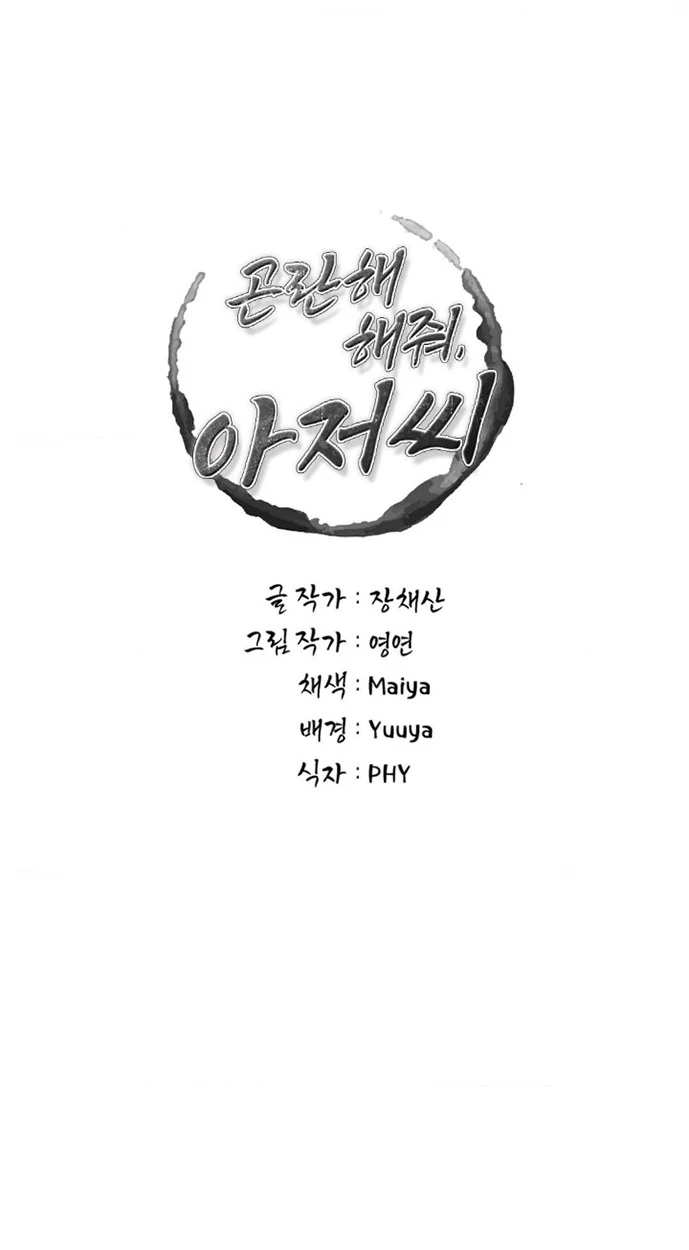 곤란해
해줘,
아저씨
글 작가 : 장채산
그림 작가 : 영연
채색 : Maiya
배경 : Yuuya
식자 : PHY